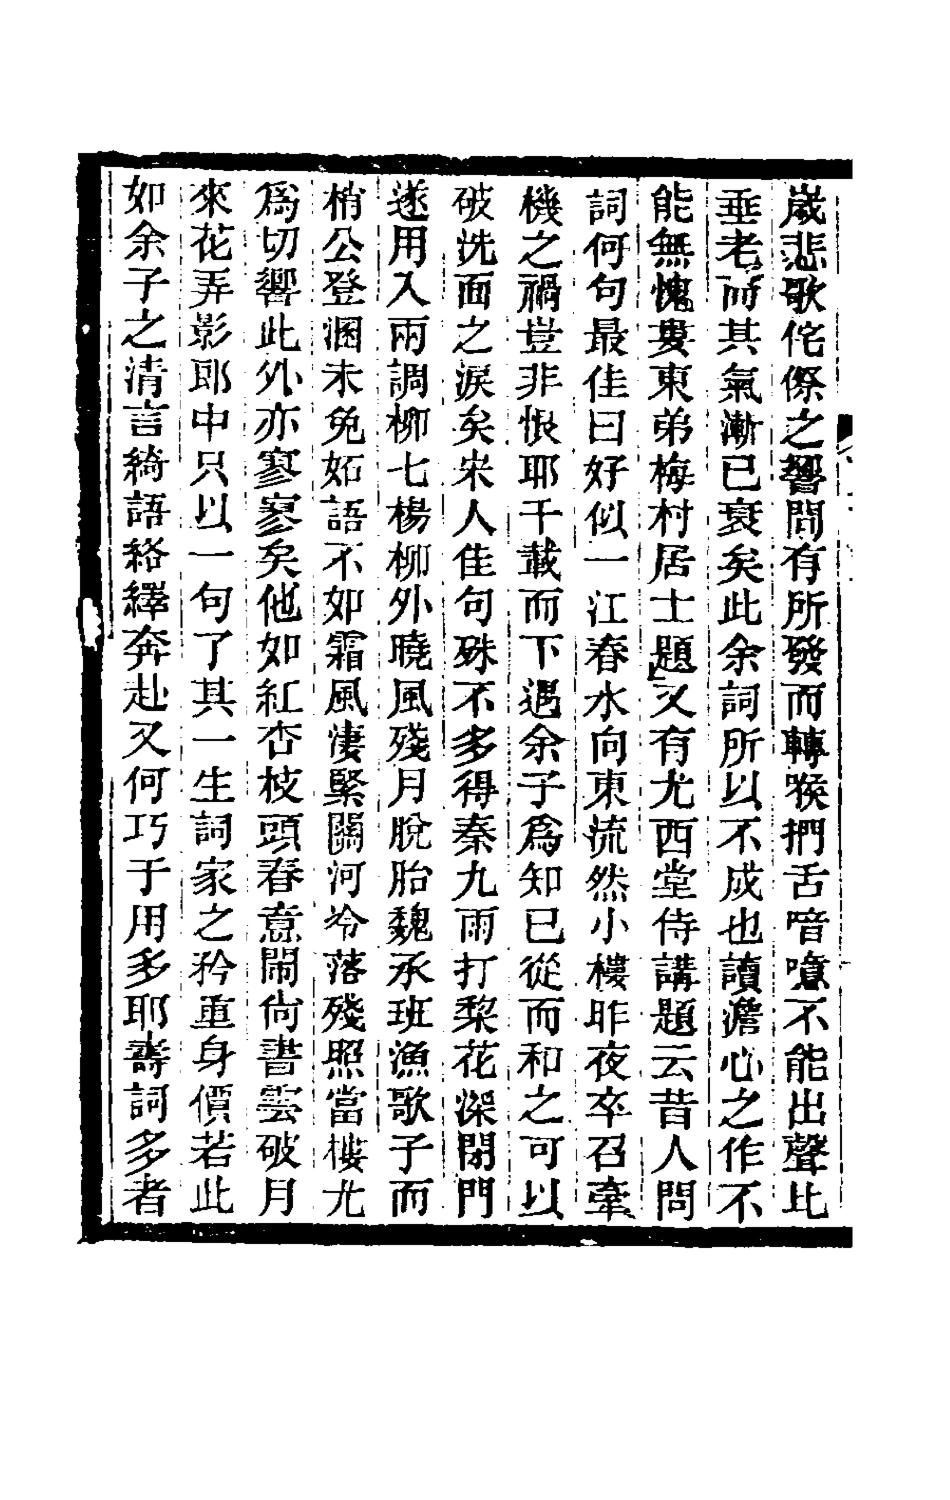 歲悲歌侘傺之響間有所發而轉喉捫舌喑噫不能出聲比
垂老而其氣漸已衰矣此余詞所以不成也讀澹心之作不
能無愧婁東弟梅村居士題又有尤西堂侍講題云昔人問
詞何句最佳曰好似一江春水向東流然小樓昨夜卒召牽
機之禍豈非恨耶千載而下遇余子爲知已從而和之可以
破洗面之淚矣宋人佳句殊不多得秦九雨打梨花深閉門
遂用入兩調柳七楊柳外曉風殘月脫胎魏承班漁歌子而
梢公登溷未免妬語不如霜風淒緊關河冷落殘照當樓尤
爲切響此外亦寥寥矣他如紅杏枝頭春意閙尙書雲破月
來花弄影郎中只以一句了其一生詞家之矜重身價若此
如余子之清言綺語絡繹奔赴又何巧于用多耶壽詞多者